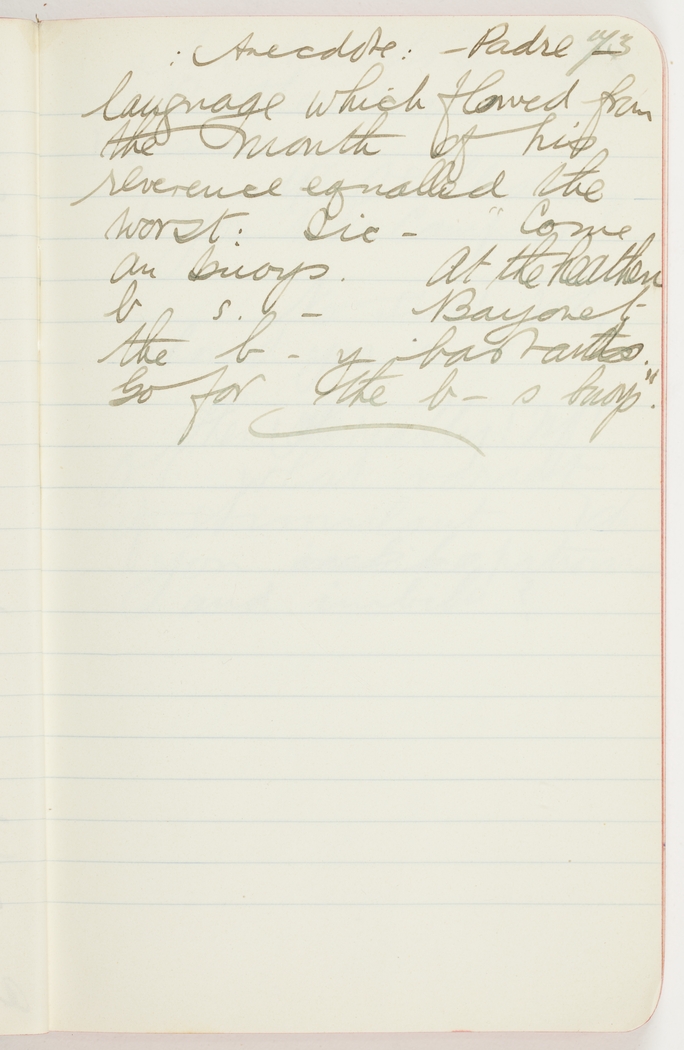 : Anecdote: - Padre -
language which flowed from
the mouth of his
reverence equalled the
worst: Sic - " Come
on buoys. At the heathen
b s. - Bayonet
the b - y bastards.
Go for the b - s buoys."